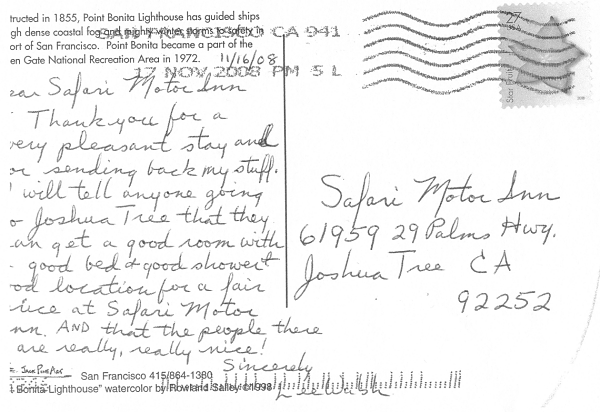 tructed in 1855, Point Bonita Lighthouse has guided ships
gh dense coastal fog and mighty winter storms to safety in
ort of San Francisco. Point Bonita became a part of the
en Gate National Recreation Area in 1972.
11/16/08
SAN FRANCISCO CA 941
17 NOV 2008 PM 5 L
27
USA
ear Safari Motor Inn
Thank you for a
very pleasant stay and
or sending back my stuff.
I will tell anyone going
o Joshua Tree that they
an get a good room with
good bed & good shower &
od location for a fair
rice at Safari Motor
nn. AND that the people there
are really, really nice!
Sincerely
Lee Walsh
Safari Motor Inn
61959 29 Palms Hwy.
Joshua Tree CA
92252
San Francisco 415/864-1380
Bonita Lighthouse" watercolor by Rowland Salley ©1998